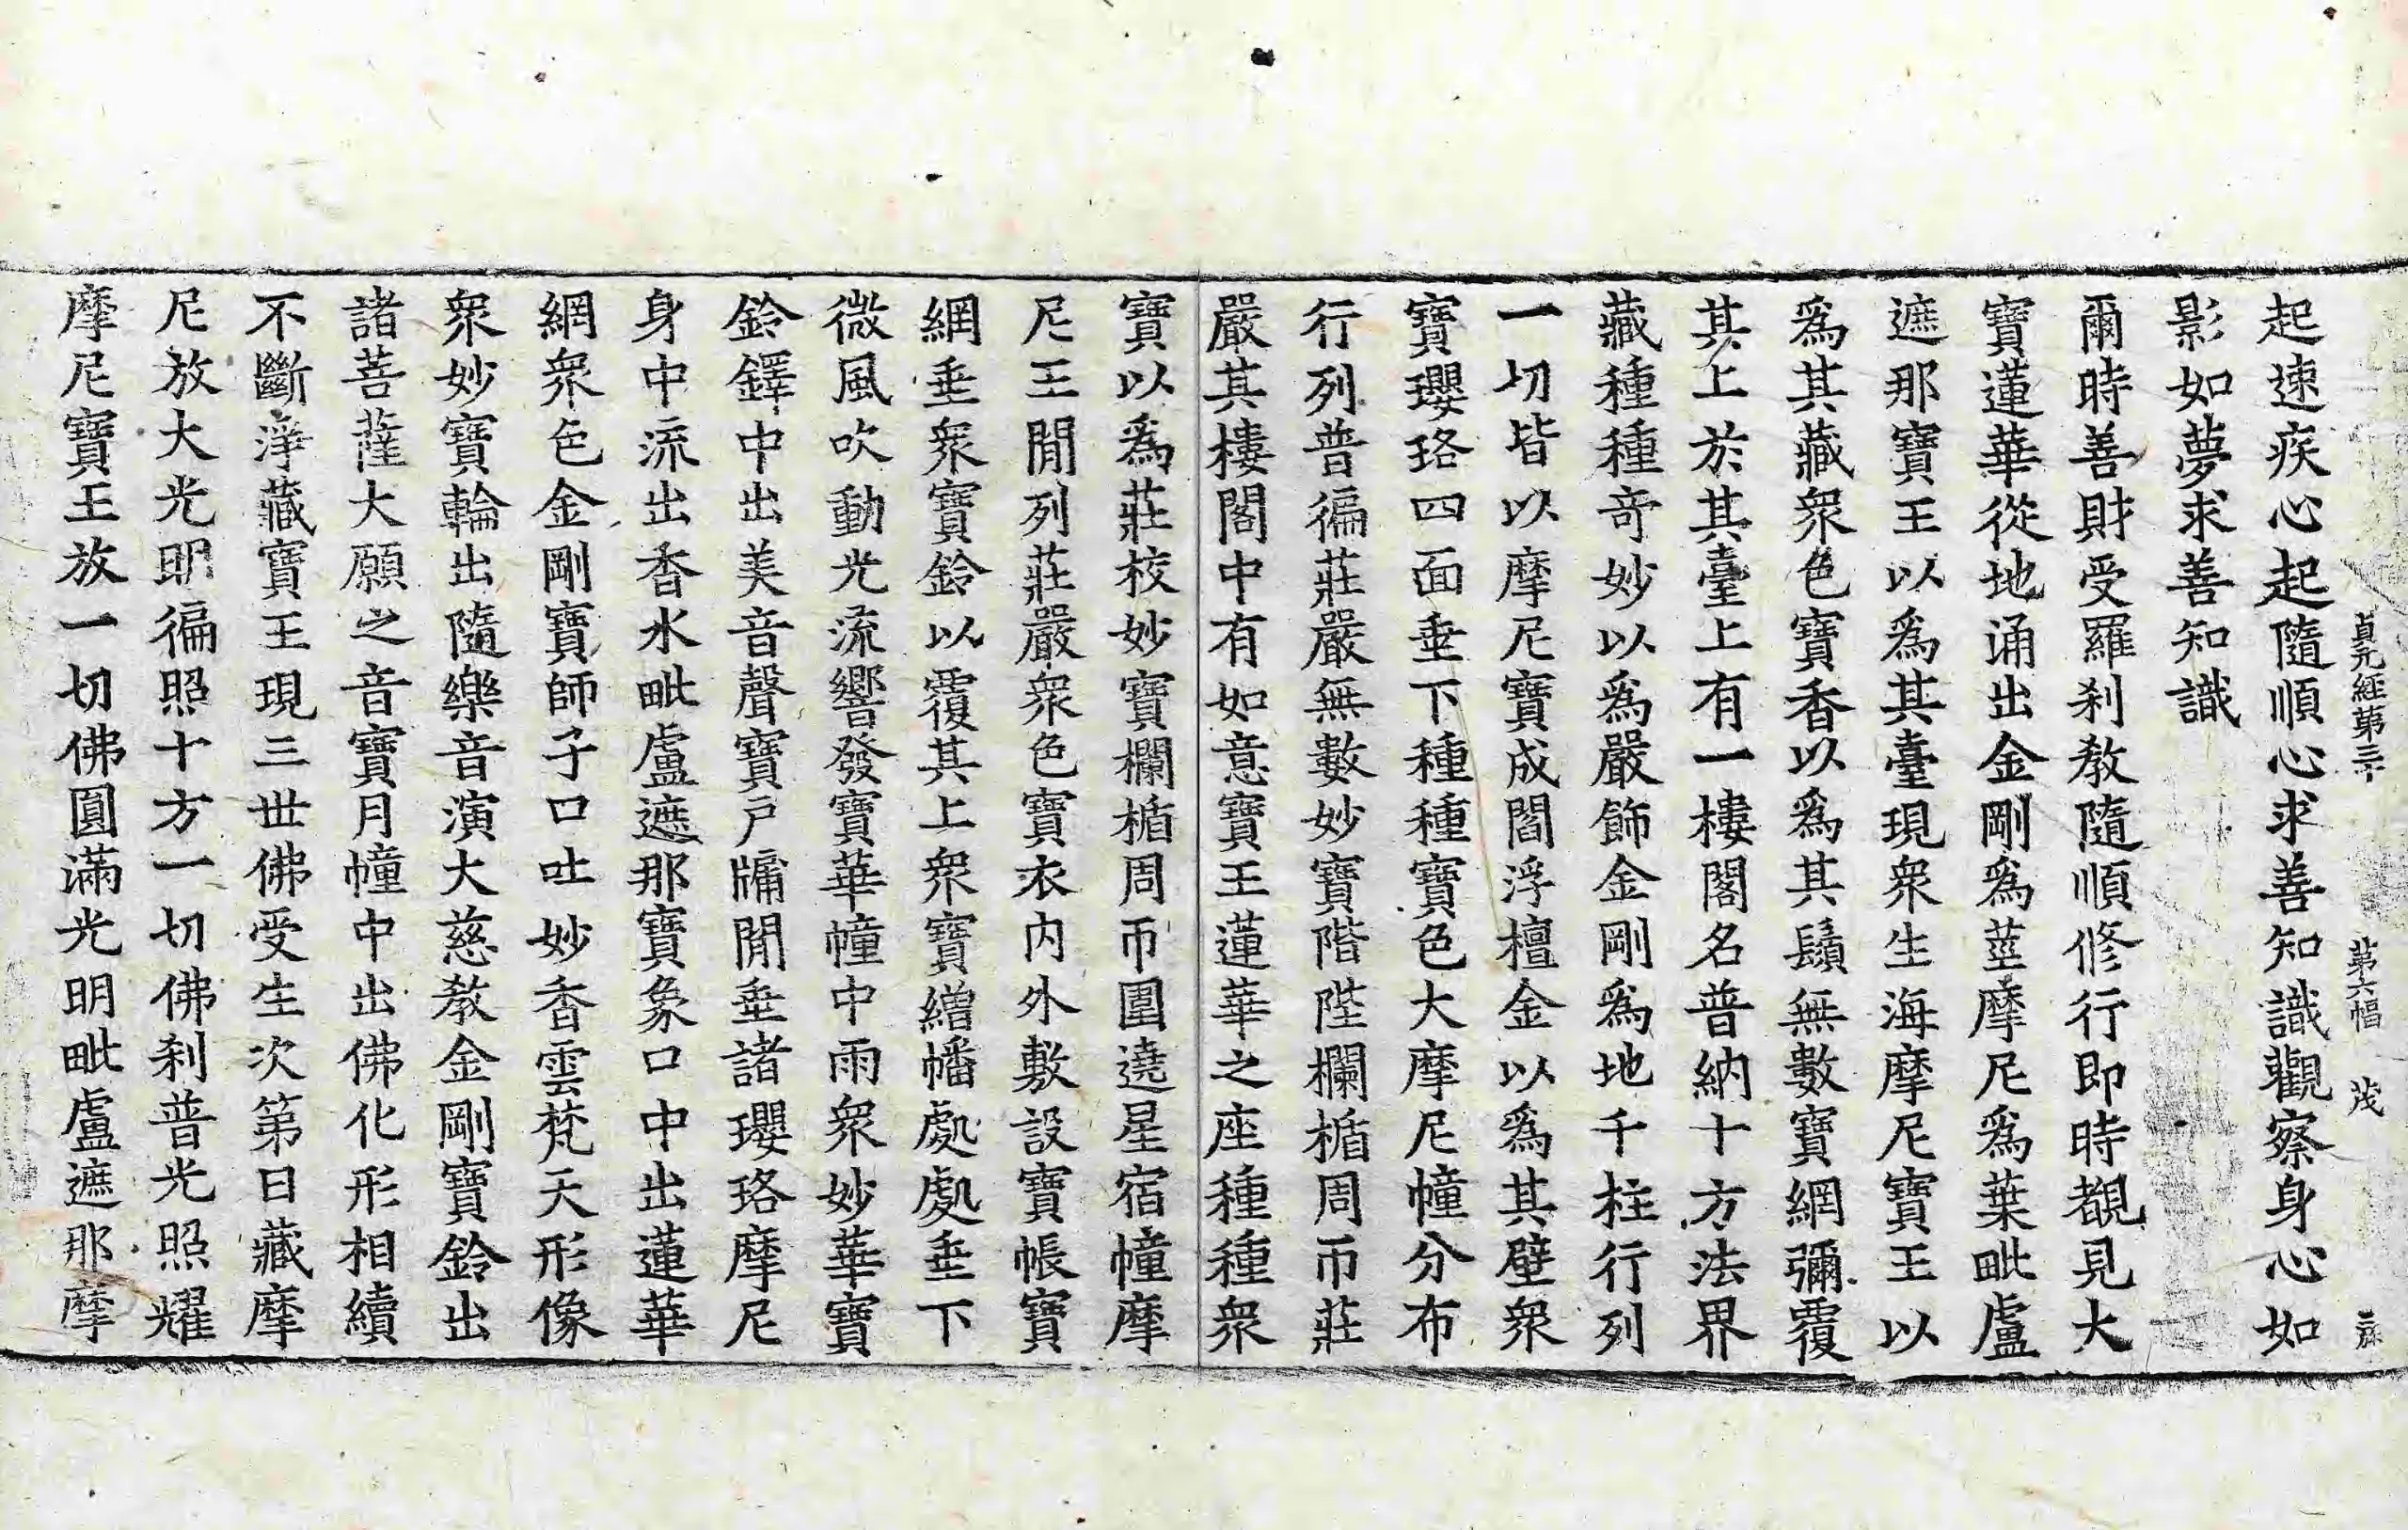 貞元經第三十 第六幅 茂
起速疾心起隨順心求善知識觀察身心如
影如夢求善知識
爾時善財受羅刹教隨順修行即時覩見大
寶蓮華從地涌出金剛爲莖摩尼爲葉毗盧
遮那寶王以爲其臺現衆生海摩尼寶王以
爲其藏衆色寶香以爲其鬚無數寶網彌覆
其上於其臺上有一樓閣名普納十方法界
藏種種奇妙以爲嚴飾金剛爲地千柱行列
一切皆以摩尼寶成閻浮檀金以爲其壁衆
寶瓔珞四面垂下種種寶色大摩尼幢分布
行列普徧莊嚴無數妙寶階陛欄楯周帀莊
嚴其樓閣中有如意寶王蓮華之座種種衆
寶以爲莊校妙寶欄楯周帀圍遶星宿幢摩
尼王閒列莊嚴衆色寶衣内外敷設寶帳寶
網垂衆寶鈴以覆其上衆寶繒幡處處垂下
微風吹動光流響發寶華幢中雨衆妙華寶
鈴鐸中出美音聲寶戶牖閒垂諸瓔珞摩尼
身中流出香水毗盧遮那寶象口中出蓮華
網衆色金剛寶師子口吐妙香雲梵天形像
衆妙寶輪出隨樂音演大慈教金剛寶鈴出
諸菩薩大願之音寶月幢中出佛化形相續
不斷淨藏寶王現三世佛受生次第日藏摩
尼放大光明徧照十方一切佛刹普光照耀
摩尼寶王放一切佛圓滿光明毗盧遮那摩